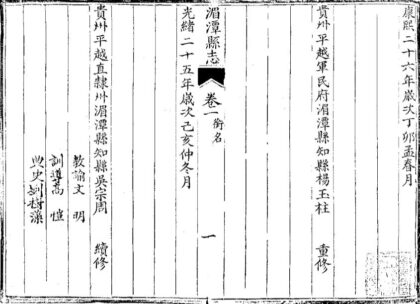 康熙二十六年歲次丁卯孟春月
貴州平越軍民府湄潭縣知縣楊玉柱
重修
湄潭縣志
卷一
銜名
一
光緒二十五年歲次己亥仲冬月
貴州平越直隸州湄潭縣知縣吳宗周
續修
教諭文 明
訓導萬 愷
典史 樹藻